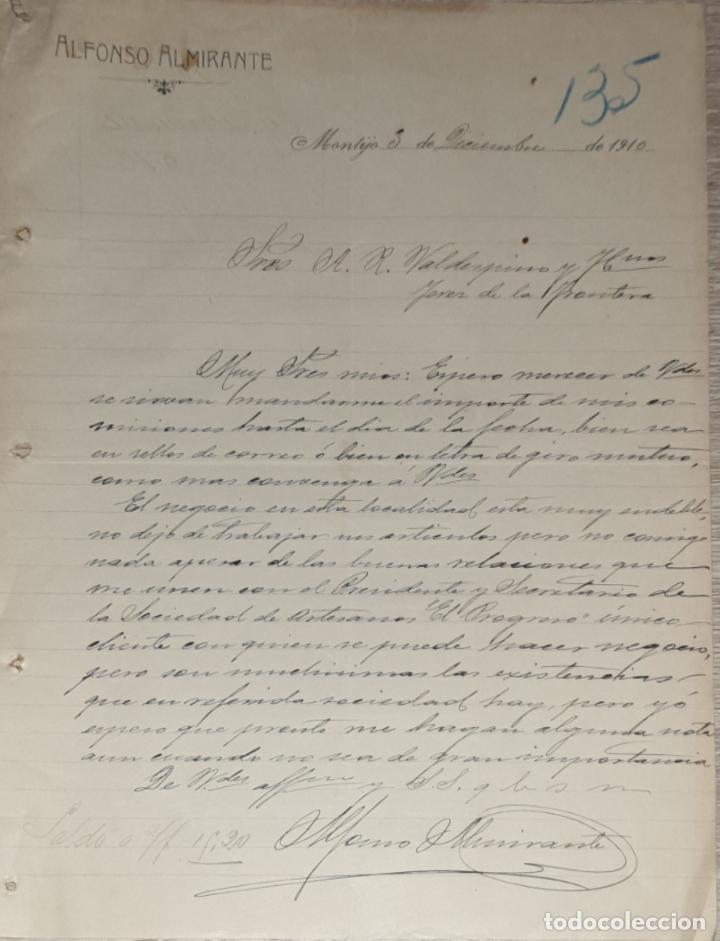 ALFONSO ALMIRANTE
135
Montijo 3 de Diciembre de 1910
Sres A. R. Valdespino y Hnos
Jerez de la Frontera
Muy Sres mios: Espero merecer de Vdes
se sirvan mandarme el importe de mis co-
misiones hasta el dia de la fecha, bien sea
en sellos de correo ó bien en letra de giro mutuo,
como mas convenga á Vdes
El negocio en esta localidad esta muy endeble,
no dejo de trabajar sus articulos pero no consigo
nada apesar de las buenas relaciones que
me unen con el Presidente y Secretario de
la Sociedad de Artesanos "El Progreso" único
cliente con quien se puede hacer negocio,
pero son muchisimas las existencias
que en referida sociedad hay, pero yó
espero que pronto me hagan alguna nota
aun cuando no sea de gran importancia
De Vdes affmo y S.S. q b s m
Saldo a/f 15,20
Alfonso Almirante
todocoleccion